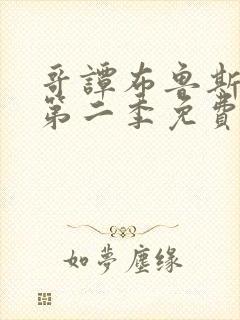 哥譚布魯斯
第二季免費
如夢塵緣